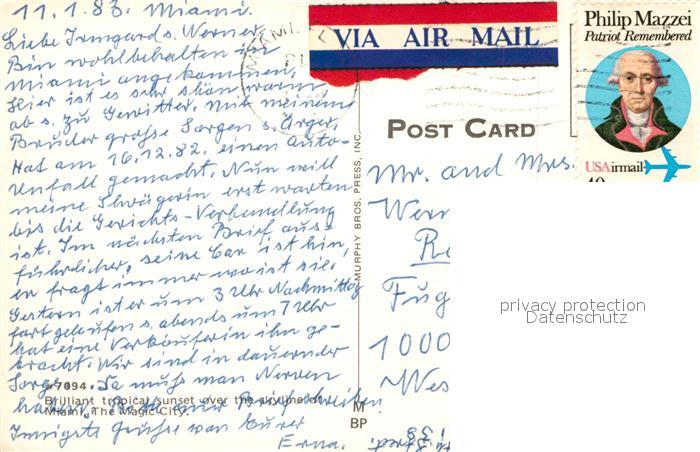 11.1.83. Miami.
Liebe Irmgard u. Werner.
Bin wohlbehalten in
Miami angekommen,
Hier ist es sehr schön warm,
ab u. zu Gewitter. Mit meinem
Bruder grosse Sorgen u. Ärger.
Hat am 16.12.82. einen Auto-
Unfall gemacht. Nun will
meine Schwägerin erst warten
bis die Gerichts-Verhandlung
ist. Im nächsten Brief aus-
führlicher, seine Car ist hin,
er fragt immer wo ist sie.
Gestern ist er um 3 Uhr Nachmittag
fort gelaufen u. abends um 7 Uhr
hat eine Verkäuferin ihn ge-
bracht. Wir sind in dauernder
Sorge. Da muss man Nerven
haben.
Innigste Grüsse von Eurer
Erna.
#7094.
Brilliant tropical sunset over the skyline of
Miami, The Magic City.
MURPHY BROS. PRESS, INC.
M
BP
VIA AIR MAIL
MIAMI
POST CARD
Philip Mazzei
Patriot Remembered
USAirmail
40
Mr. and Mrs.
Wern
Fug
1000
Wes
privacy protection
Datenschutz